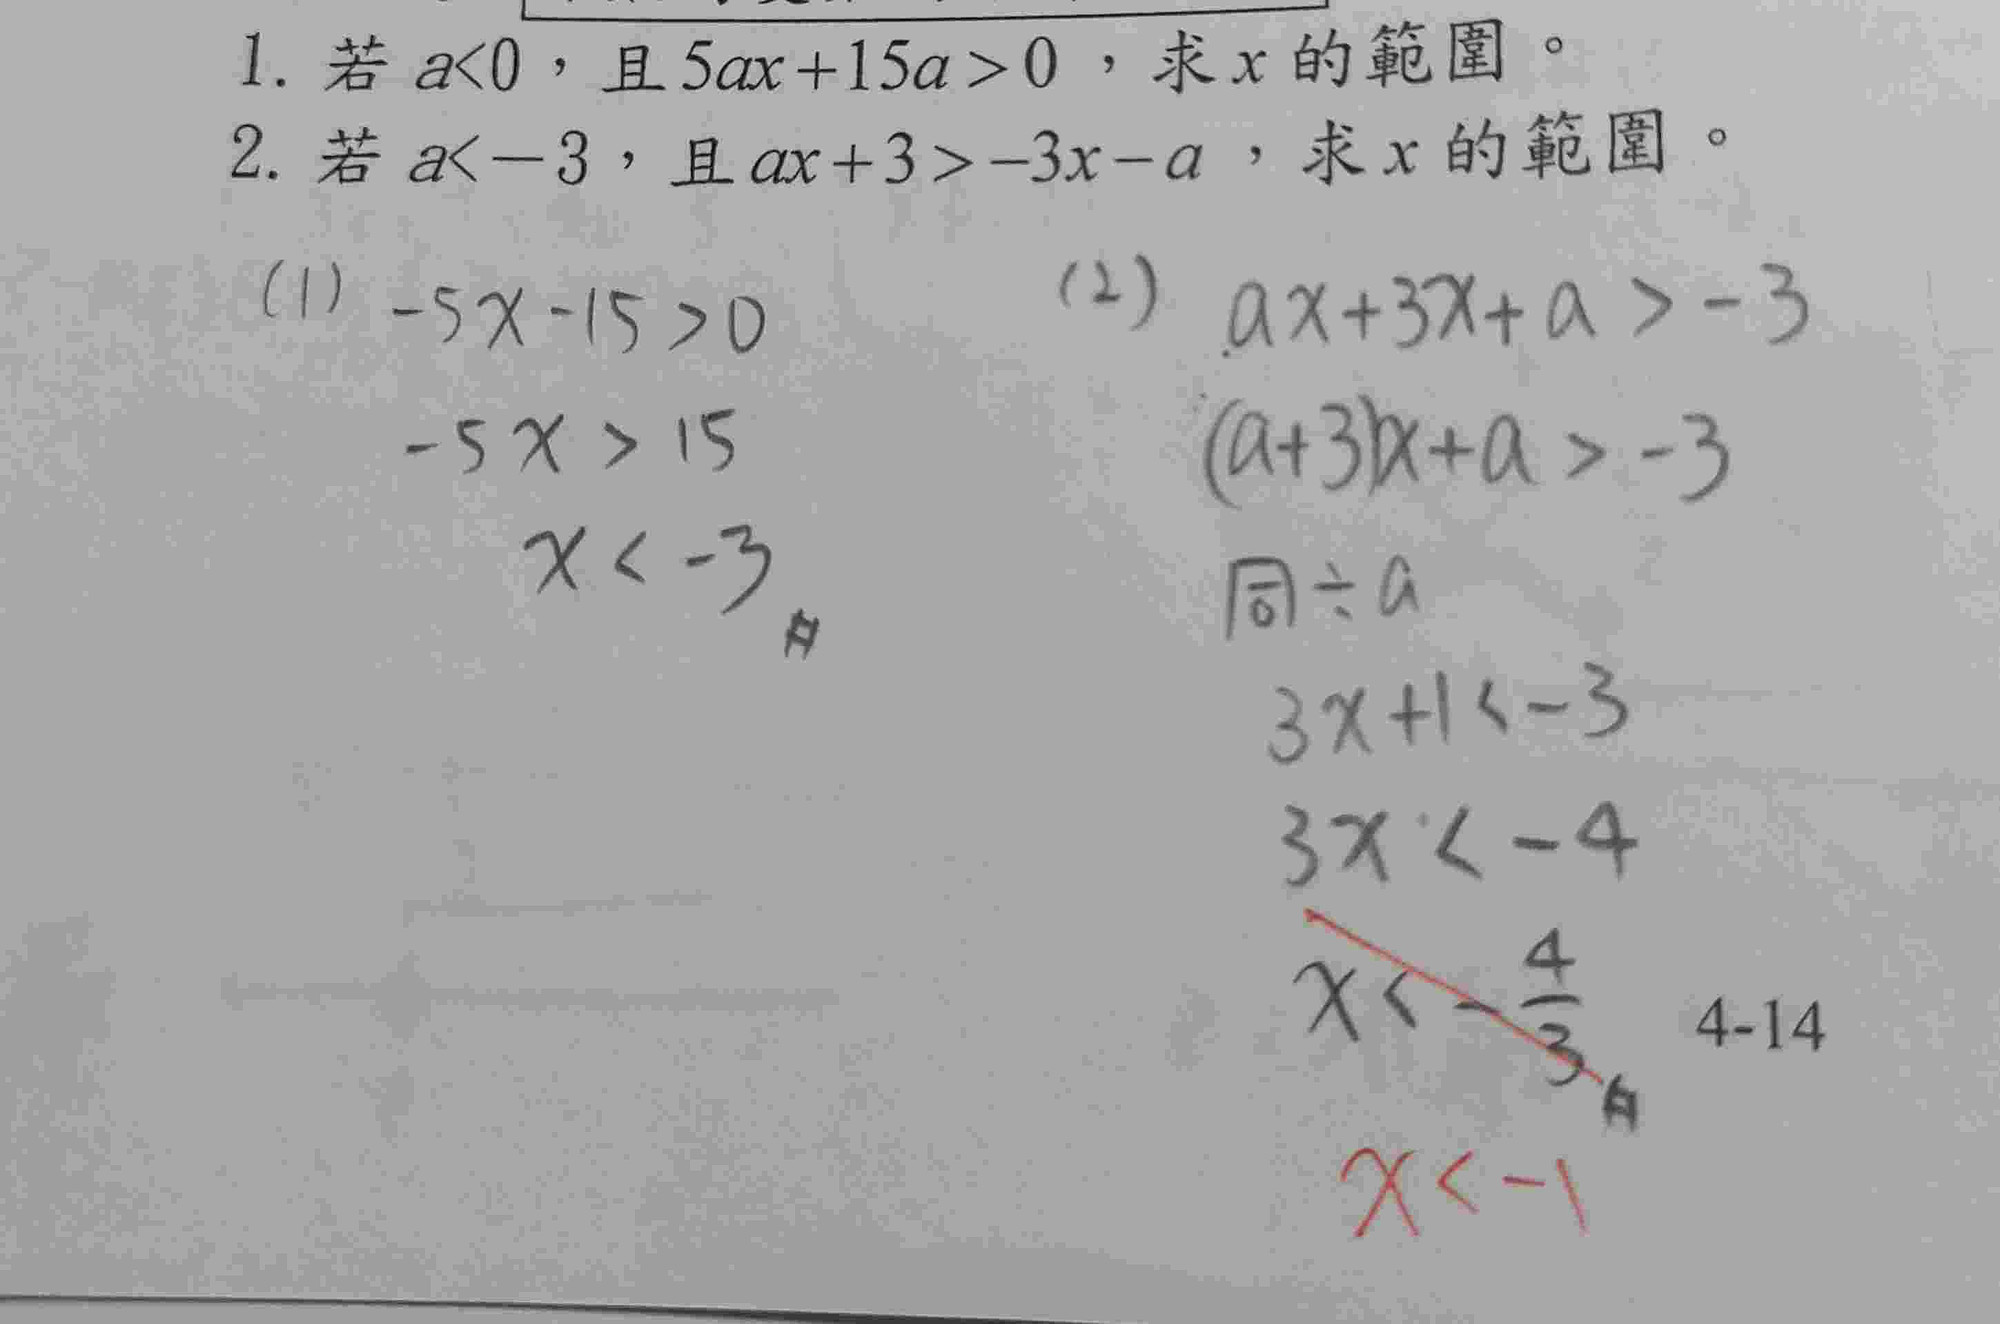 1. 若 a<0，且 5ax+15a>0，求 x 的範圍。
2. 若 a<-3，且 ax+3>-3x-a，求 x 的範圍。
(1) -5x-15>0
-5x>15
x<-3
(2) ax+3x+a>-3
(a+3)x+a>-3
同÷a
3x+1<-3
3x<-4
x<-4/3
4-14
x<-1